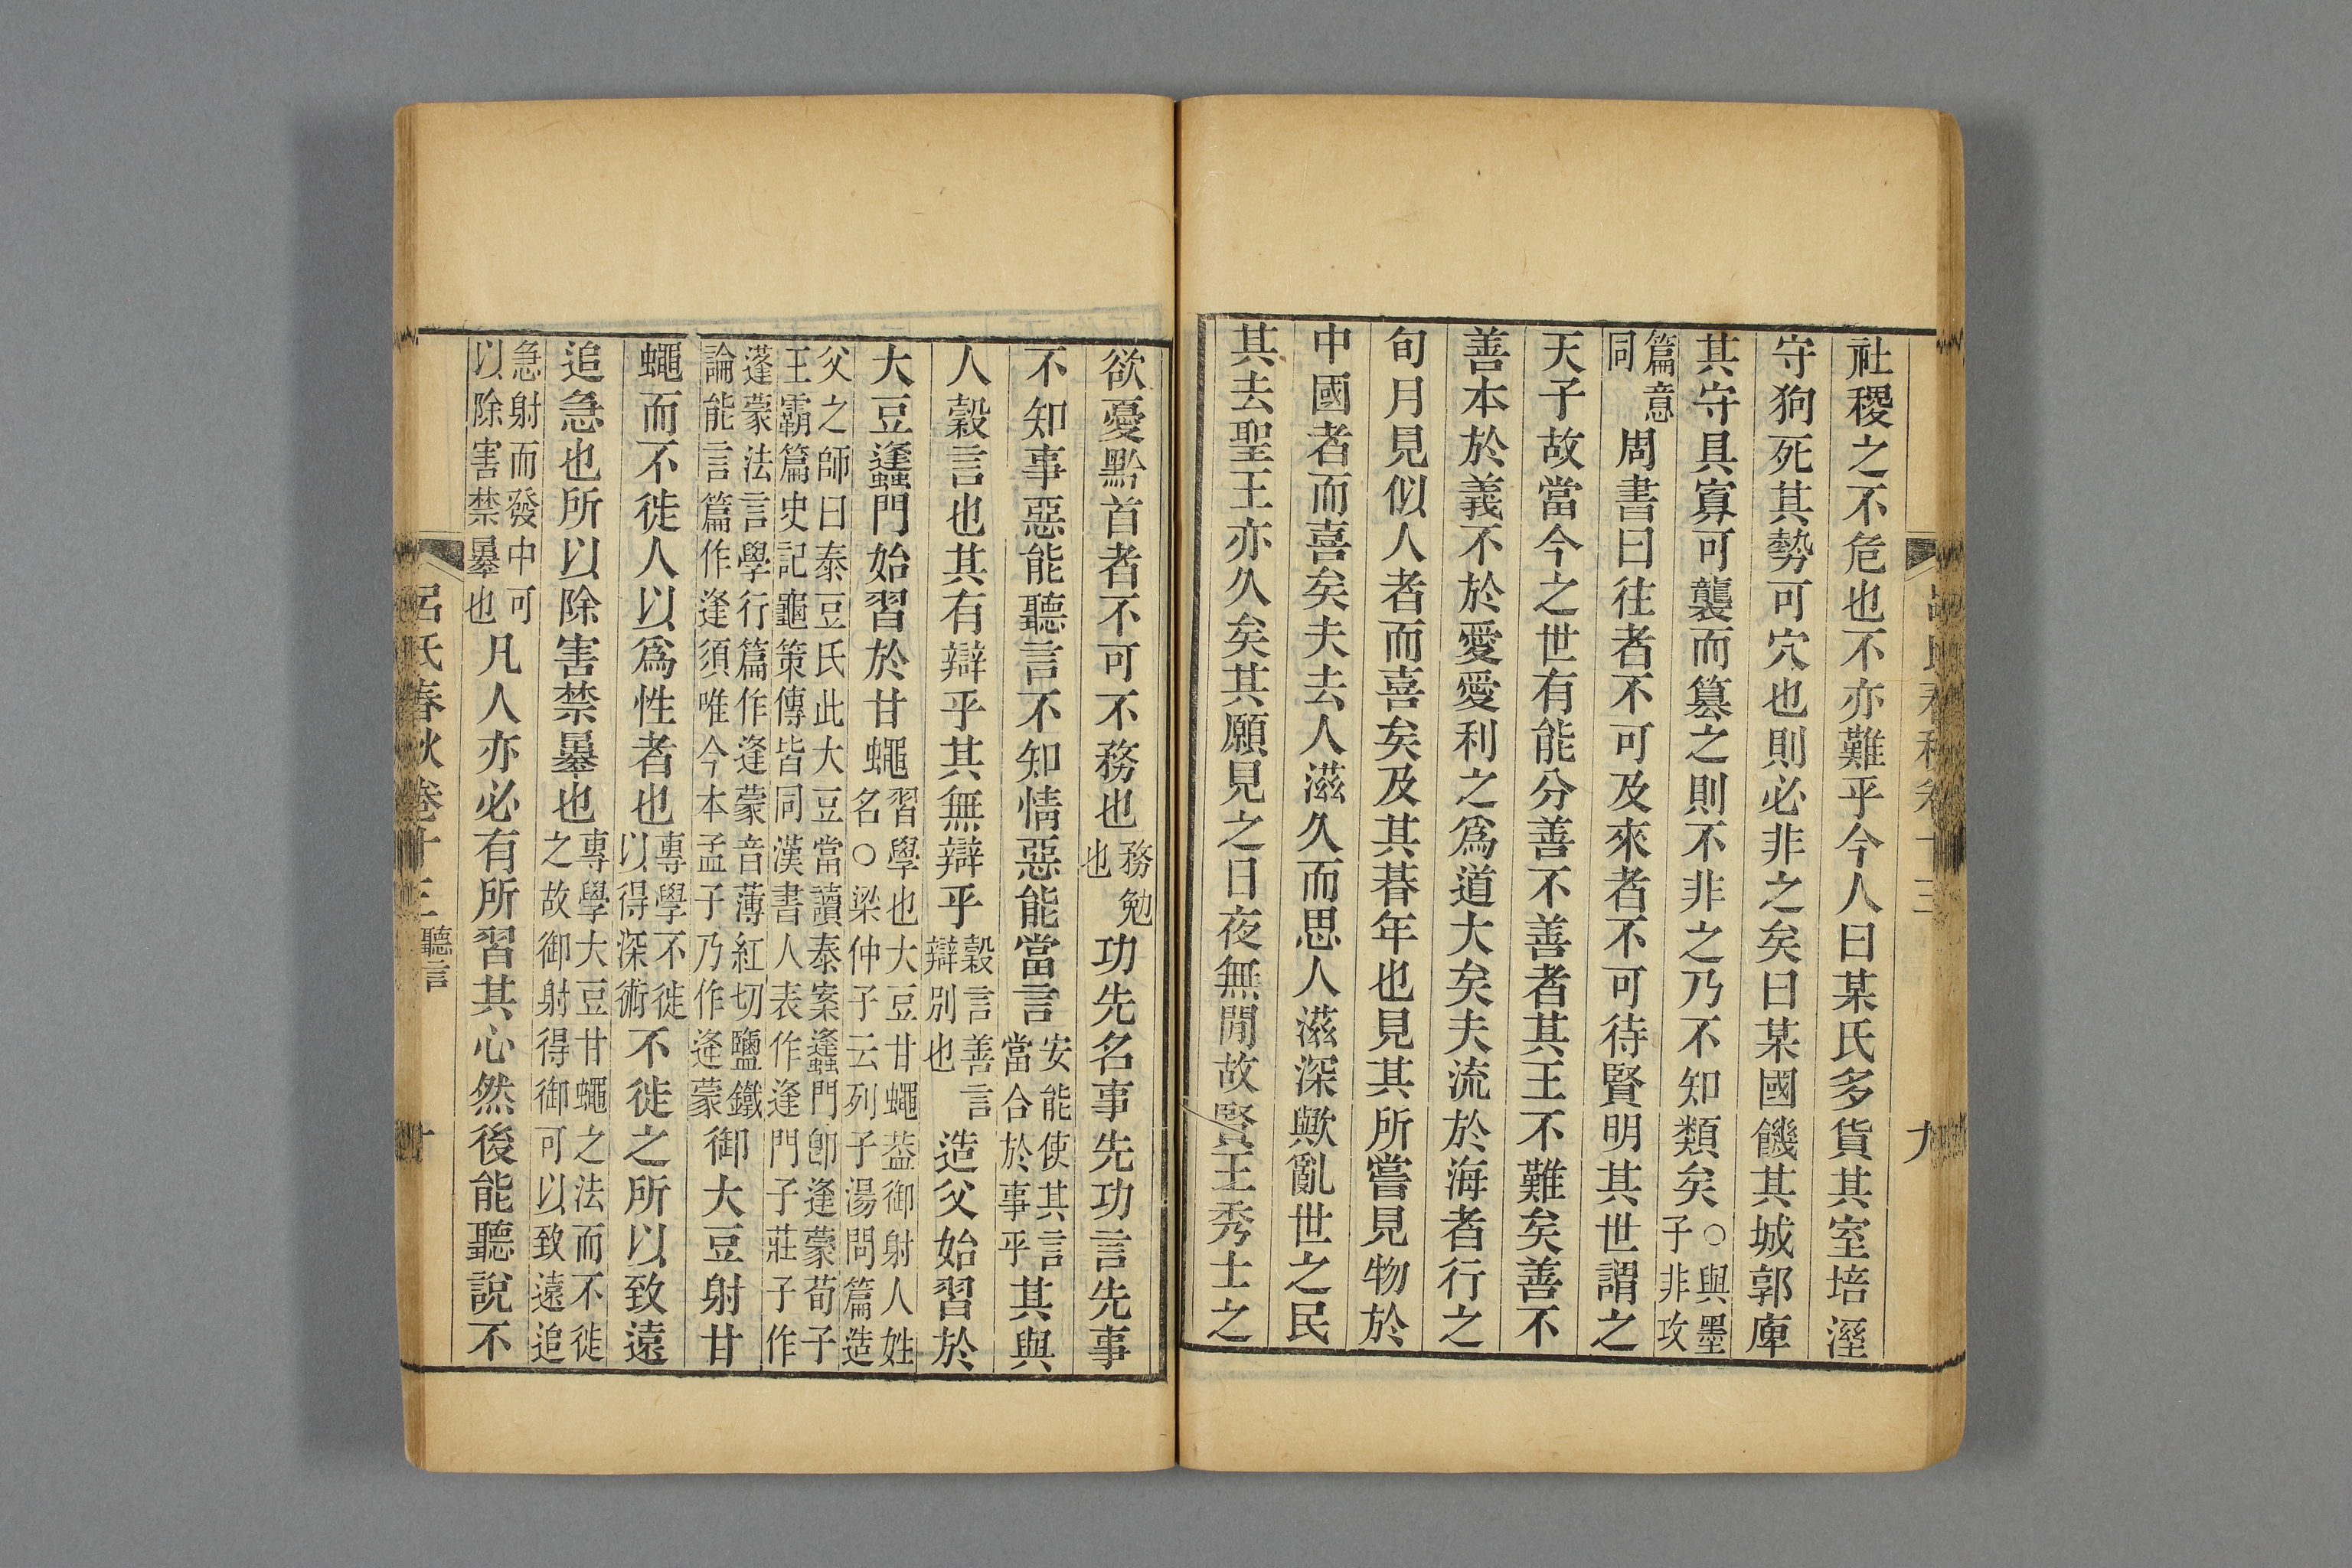 社稷之不危也不亦難乎今人曰某氏多貨其室培溼
守狗死其勢可穴也則必非之矣曰某國饑其城郭庳
其守具寡可襲而篡之則不非之乃不知類矣○與墨子非攻
篇意同周書曰往者不可及來者不可待賢明其世謂之
天子故當今之世有能分善不善者其王不難矣善不
善本於義不於愛愛利之爲道大矣夫流於海者行之
旬月見似人者而喜矣及其朞年也見其所嘗見物於
中國者而喜矣夫去人滋久而思人滋深歟亂世之民
其去聖王亦久矣其願見之日夜無閒故賢王秀士之
欲憂黔首者不可不務也務勉也功先名事先功言先事
不知事惡能聽言不知情惡能當言安能使其言當合於事乎其與
人穀言也其有辯乎其無辯乎穀言善言辯別也造父始習於
大豆蠭門始習於甘蠅習學也大豆甘蠅葢御射人姓名○梁仲子云列子湯問篇造
父之師曰泰豆氏此大豆當讀泰案蠭門卽逢蒙荀子王霸篇史記龜策傳皆同漢書人表作逢門子莊子作
蓬蒙法言學行篇作逢蒙音薄紅切鹽鐵論能言篇作逢須唯今本孟子乃作逄蒙御大豆射甘
蠅而不徙人以爲性者也專學不徙以得深術不徙之所以致遠
追急也所以除害禁暴也專學大豆甘蠅之法而不徙之故御射得御可以致遠追
急射而發中可以除害禁暴也凡人亦必有所習其心然後能聽說不
呂氏春秋卷十三 聽言 十
九